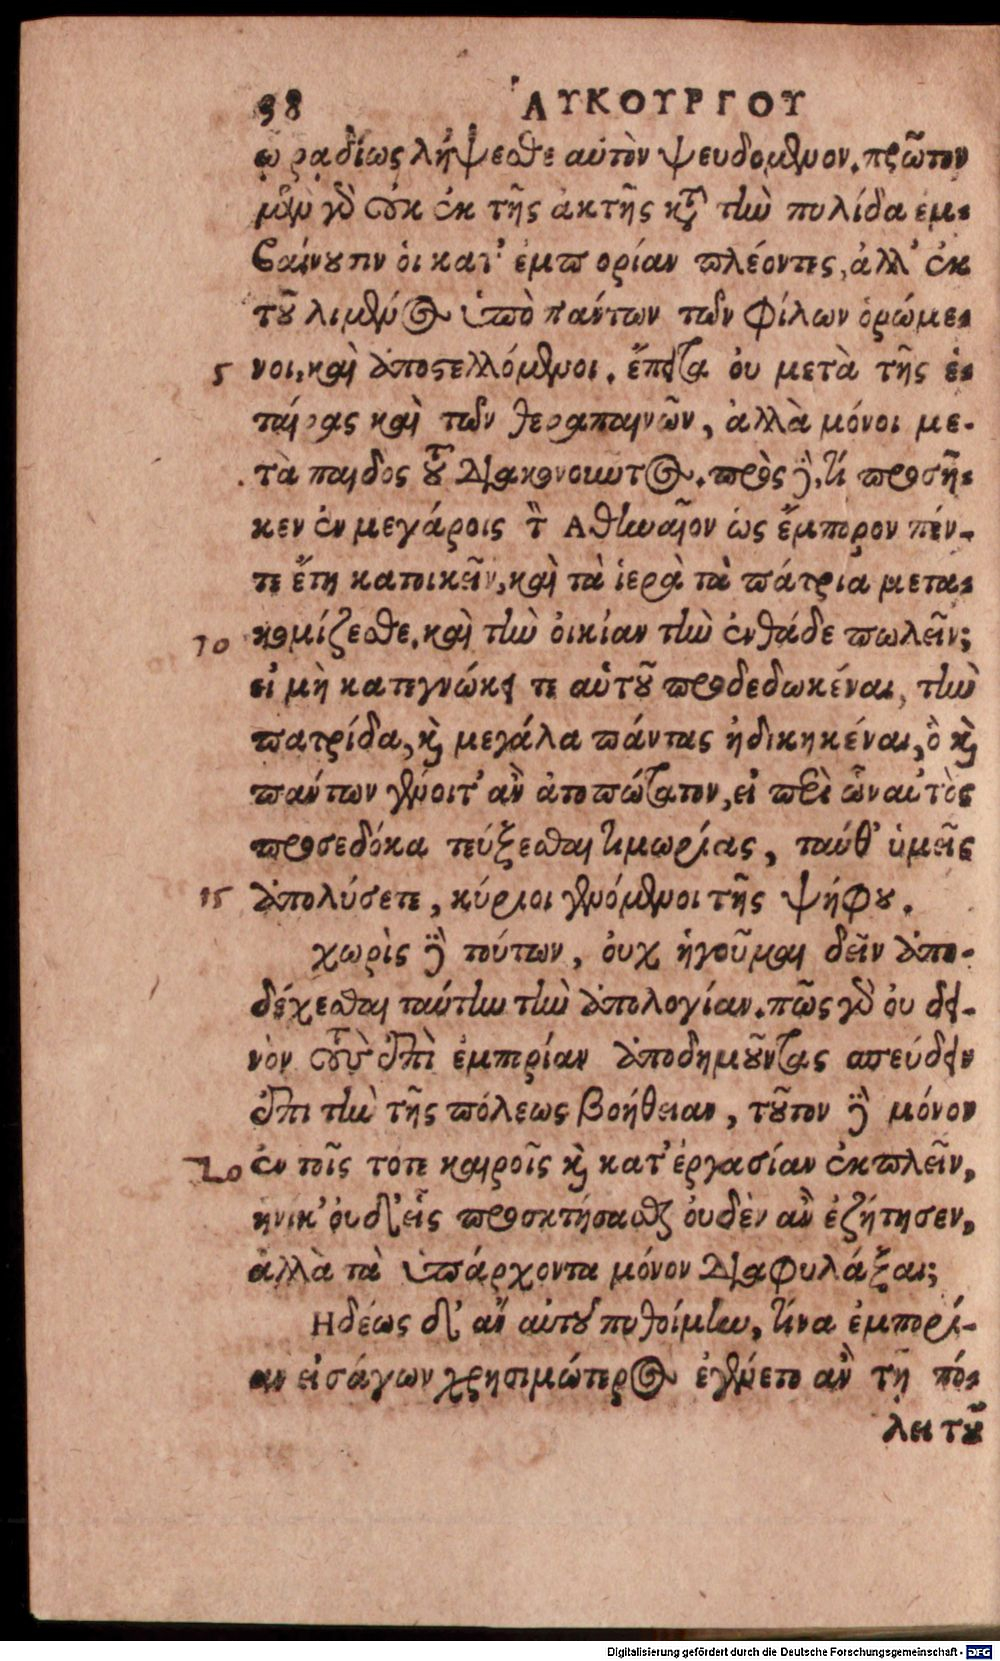 38 ΛΥΚΟΥΡΓΟΥ
ῳ ῥαδίως λήψεσθε αὐτὸν ψευδομενον. πρῶτον
μὲν γὸ οὐκ ἐκ τῆς ἀκτῆς κτ τὴν πυλίδα ἐμ-
βαίνουσιν οἱ κατ' ἐμπορίαν πλέοντες, ἀλλ' ἐκ
τοῦ λιμένος ὑπὸ πάντων τῶν φίλων ὁρώμε-
5 νοι, καὶ ἀποστελλόμενοι. ἔπειτα οὐ μετὰ τῆς ἑ-
ταίρας καὶ τῶν θεραπαινῶν, ἀλλὰ μόνοι με-
τὰ παιδὸς τοῦ διακονουντος. πρὸς δὲ, τί προσῆ-
κεν ἐν μεγάροις τὸν Αθηναῖον ὡς ἔμπορον πέν-
τε ἔτη κατοικεῖν, καὶ τὰ ἱερὰ τὰ πάτρια μετα-
10 κομίζεσθε. καὶ τὴν οἰκίαν τὴν ἐνθάδε πωλεῖν;
εἰ μὴ κατεγνώκει τε αὑτοῦ προδεδωκέναι, τὴν
πατρίδα, καὶ μεγάλα πάντας ἠδικηκέναι, ὃ καὶ
πάντων γένοιτ' ἂν ἀτοπώτατον, εἰ περὶ ὧν αὐτὸς
προσεδόκα τεύξεσθαι τιμωρίας, ταύθ' ὑμεῖς
15 ἀπολύσετε, κύριοι γενόμενοι τῆς ψήφου.
χωρὶς δὲ τούτων, οὐχ ἡγοῦμαι δεῖν ἀπο-
δέχεσθαι ταύτην τὴν ἀπολογίαν. πῶς γὸ οὐ δει-
νὸν τοὺς ἐπὶ ἐμπορίαν ἀποδημοῦντας σπεύδειν
ἐπι τὴν τῆς πόλεως βοήθειαν, τοῦτον δὲ μόνον
20 ἐν τοῖς τότε καιροῖς καὶ κατ' ἐργασίαν ἐκπλεῖν,
ἡνίκ' οὐδ' εἷς προσκτήσασθαι οὐδὲν ἂν ἐζήτησεν,
ἀλλὰ τὰ ὑπάρχοντα μόνον διαφυλάξαι;
Ηδέως δ' ἂν αὐτοῦ πυθοίμην, τίνα ἐμπορί-
αν εἰσάγων χρησιμώτερος ἐγένετο ἂν τῇ πό-
λει τοῦ
Digitalisierung gefördert durch die Deutsche Forschungsgemeinschaft - DFG